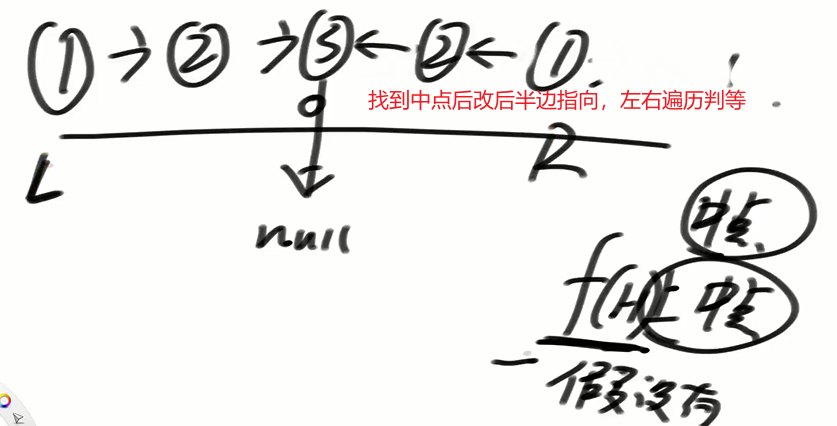 ① → ② → ③ ← ② ← ①
找到中点后改后半边指向，左右遍历判等
L
R
null
中点
f(H) 中点
假设有